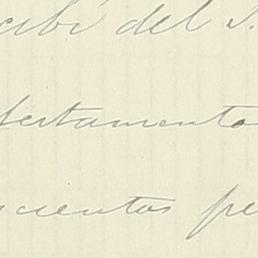 cibí del S.
fertamento
scientos pe